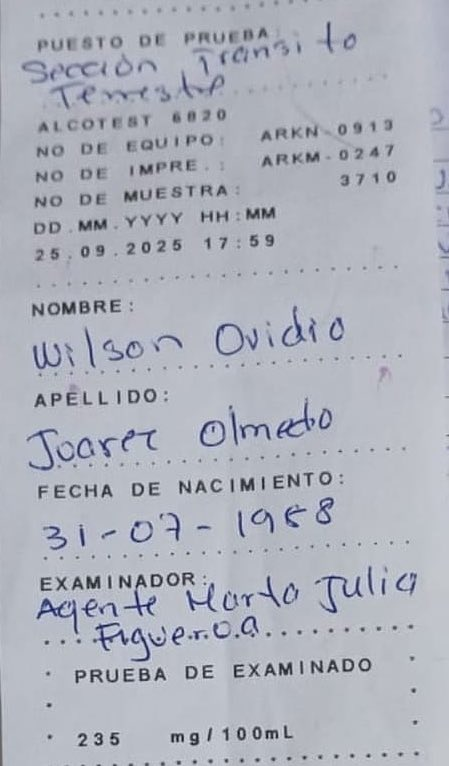 PUESTO DE PRUEBA
Sección Transito
Terrestre
ALCOTEST 6820
NO DE EQUIPO: ARKN-0913
NO DE IMPRE.: ARKM-0247
NO DE MUESTRA: 3710
DD.MM.YYYY HH:MM
25.09.2025 17:59
NOMBRE:
Wilson Ovidio
APELLIDO:
Juarez Olmedo
FECHA DE NACIMIENTO:
31-07-1988
EXAMINADOR:
Agente Marta Julia
Figueroa
PRUEBA DE EXAMINADO
235 mg/100mL